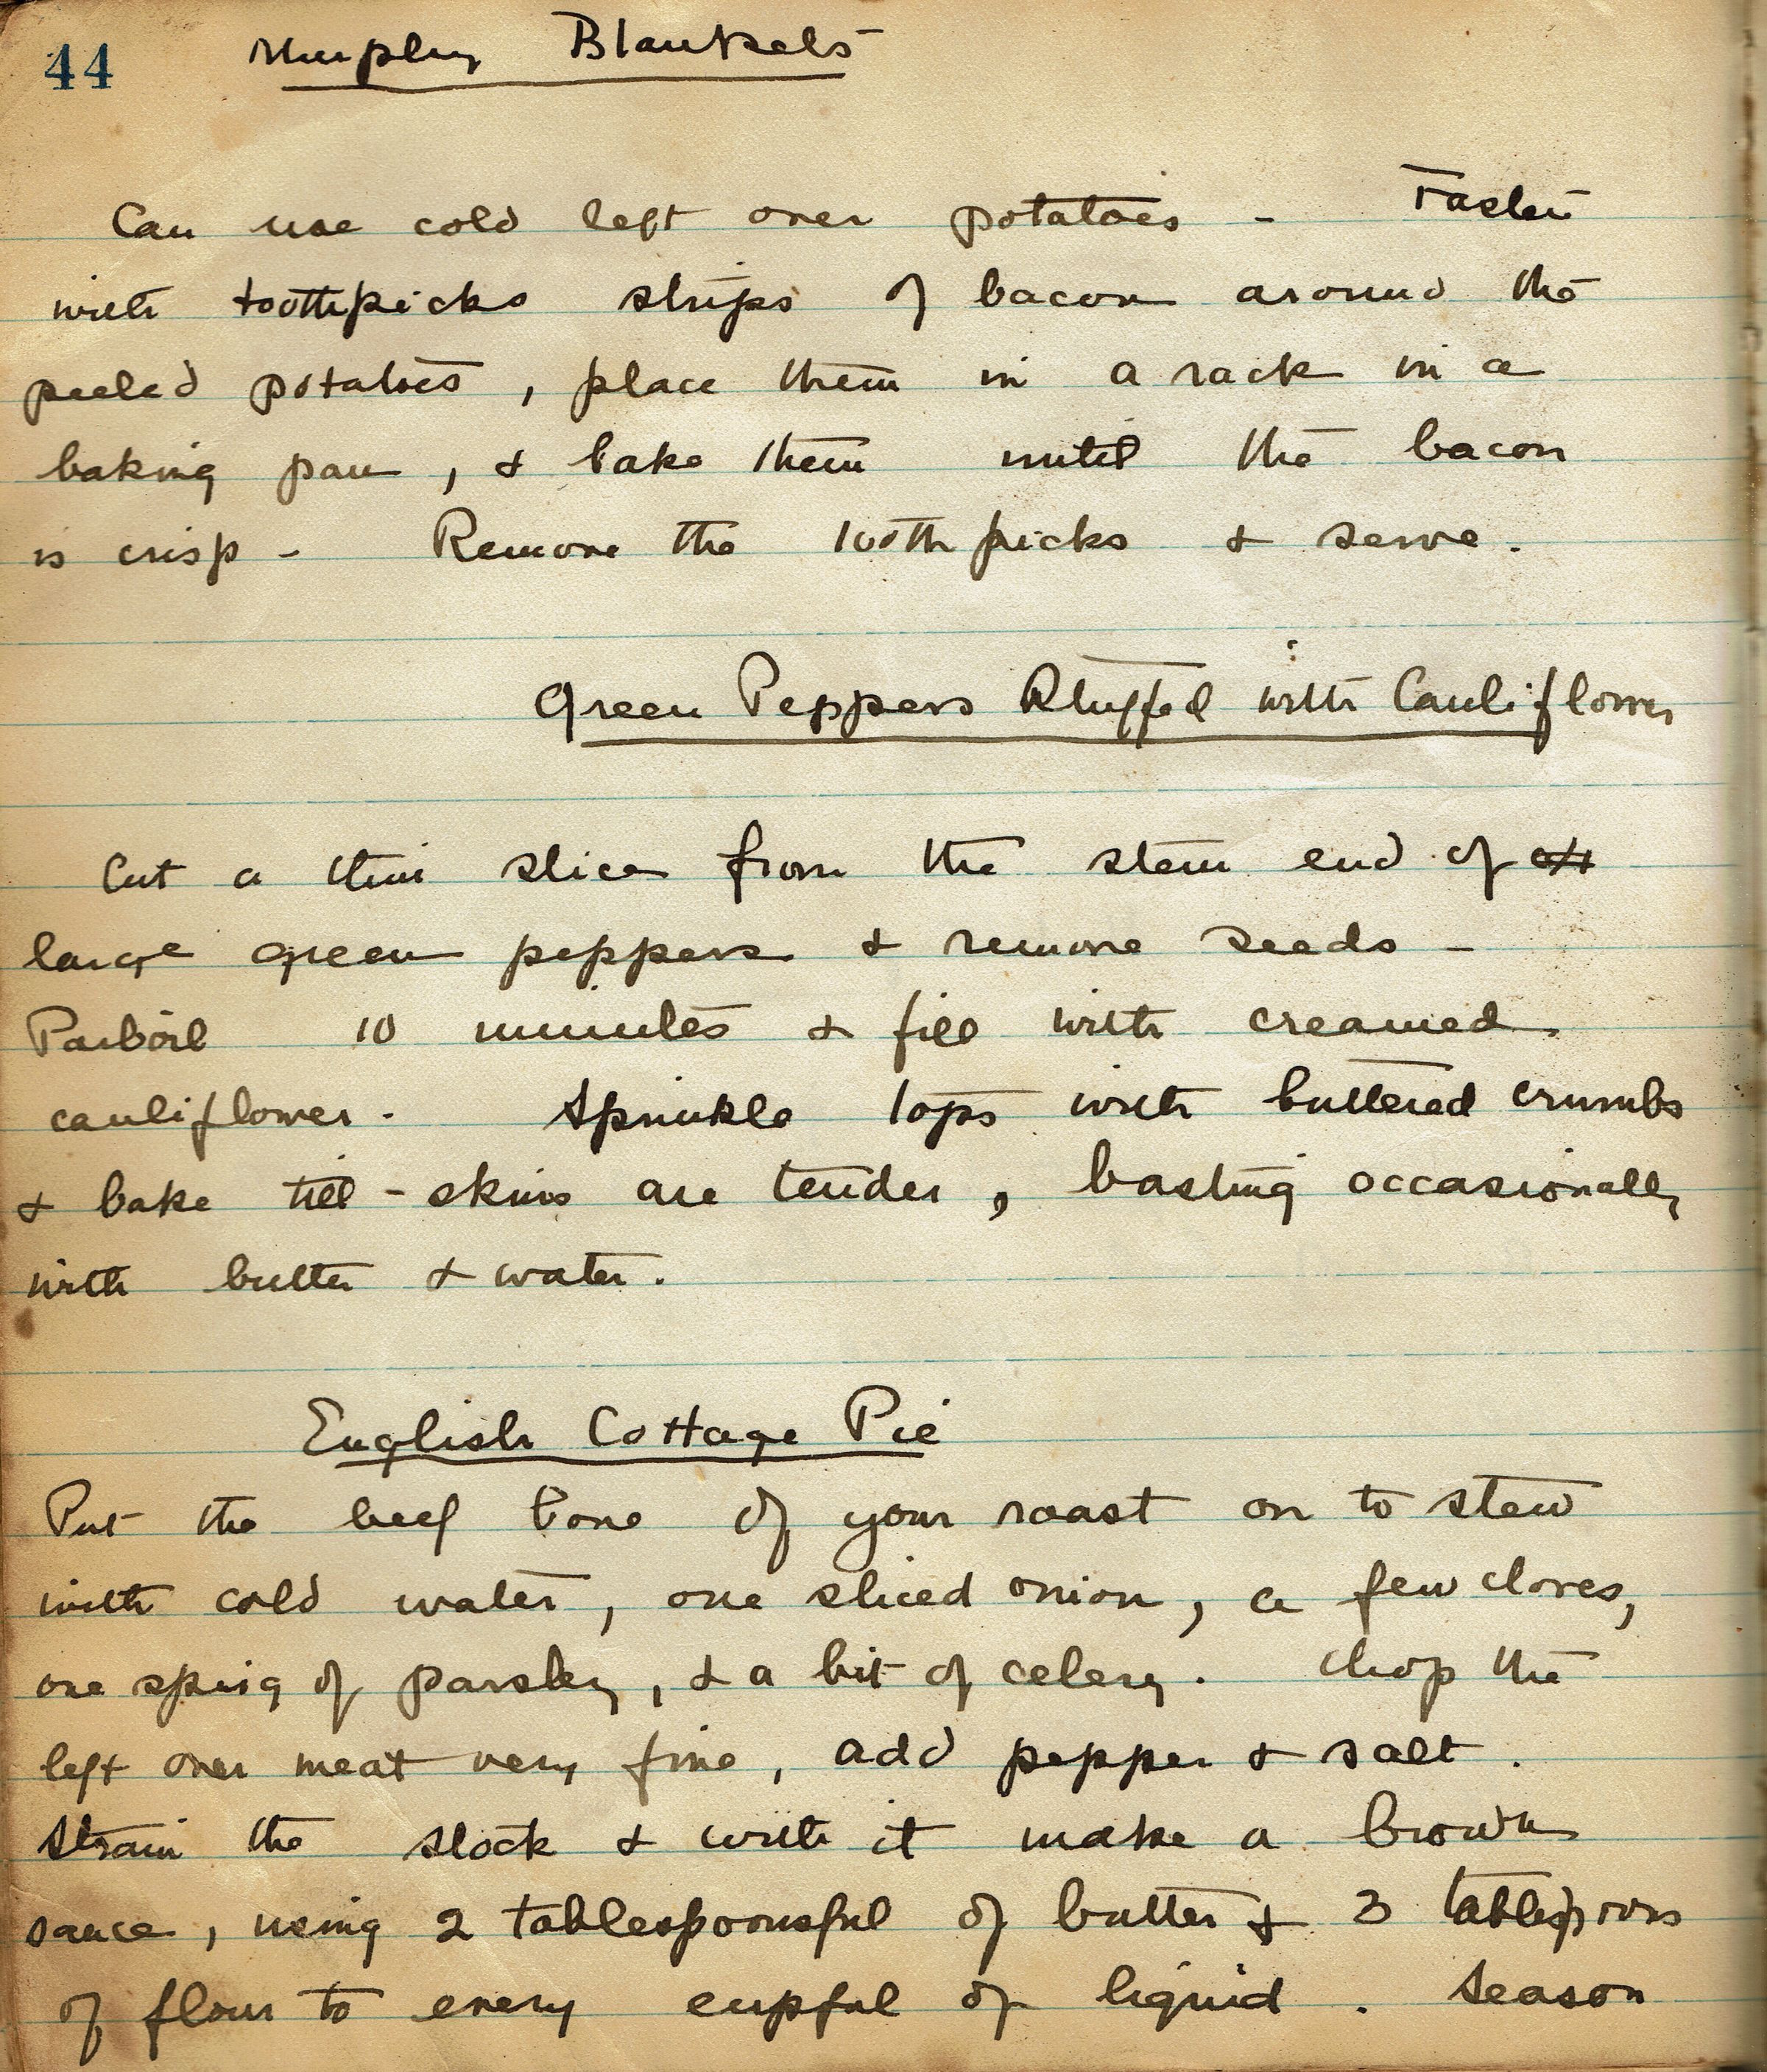 44 Murphy Blankets
Can use cold left over potatoes - Fasten
with toothpicks strips of bacon around the
peeled potatoes, place them in a rack in a
baking pan, & bake them until the bacon
is crisp - Remove the toothpicks & serve.
Green Peppers Stuffed with Cauliflower
Cut a thin slice from the stem end of
large green peppers & remove seeds -
Parboil 10 minutes & fill with creamed
cauliflower. Sprinkle tops with buttered crumbs
& bake till skins are tender, basting occasionally
with butter & water.
English Cottage Pie
Put the beef bone of your roast on to stew
with cold water, one sliced onion, a few cloves,
one sprig of parsley, & a bit of celery. Chop the
left over meat very fine, add pepper & salt.
Strain the stock & with it make a brown
sauce, using 2 tablespoonsful of butter & 3 tablespoons
of flour to every cupful of liquid. Season